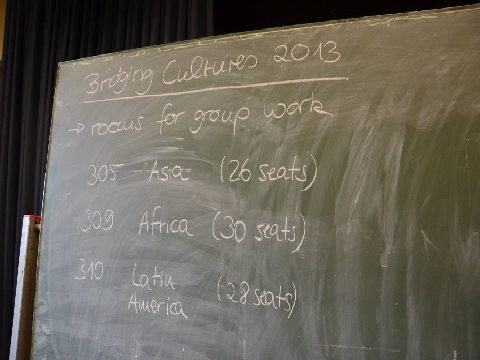 Bridging Cultures 2013
→ rooms for group work
305 Asia (26 seats)
309 Africa (30 seats)
310 Latin America (28 seats)